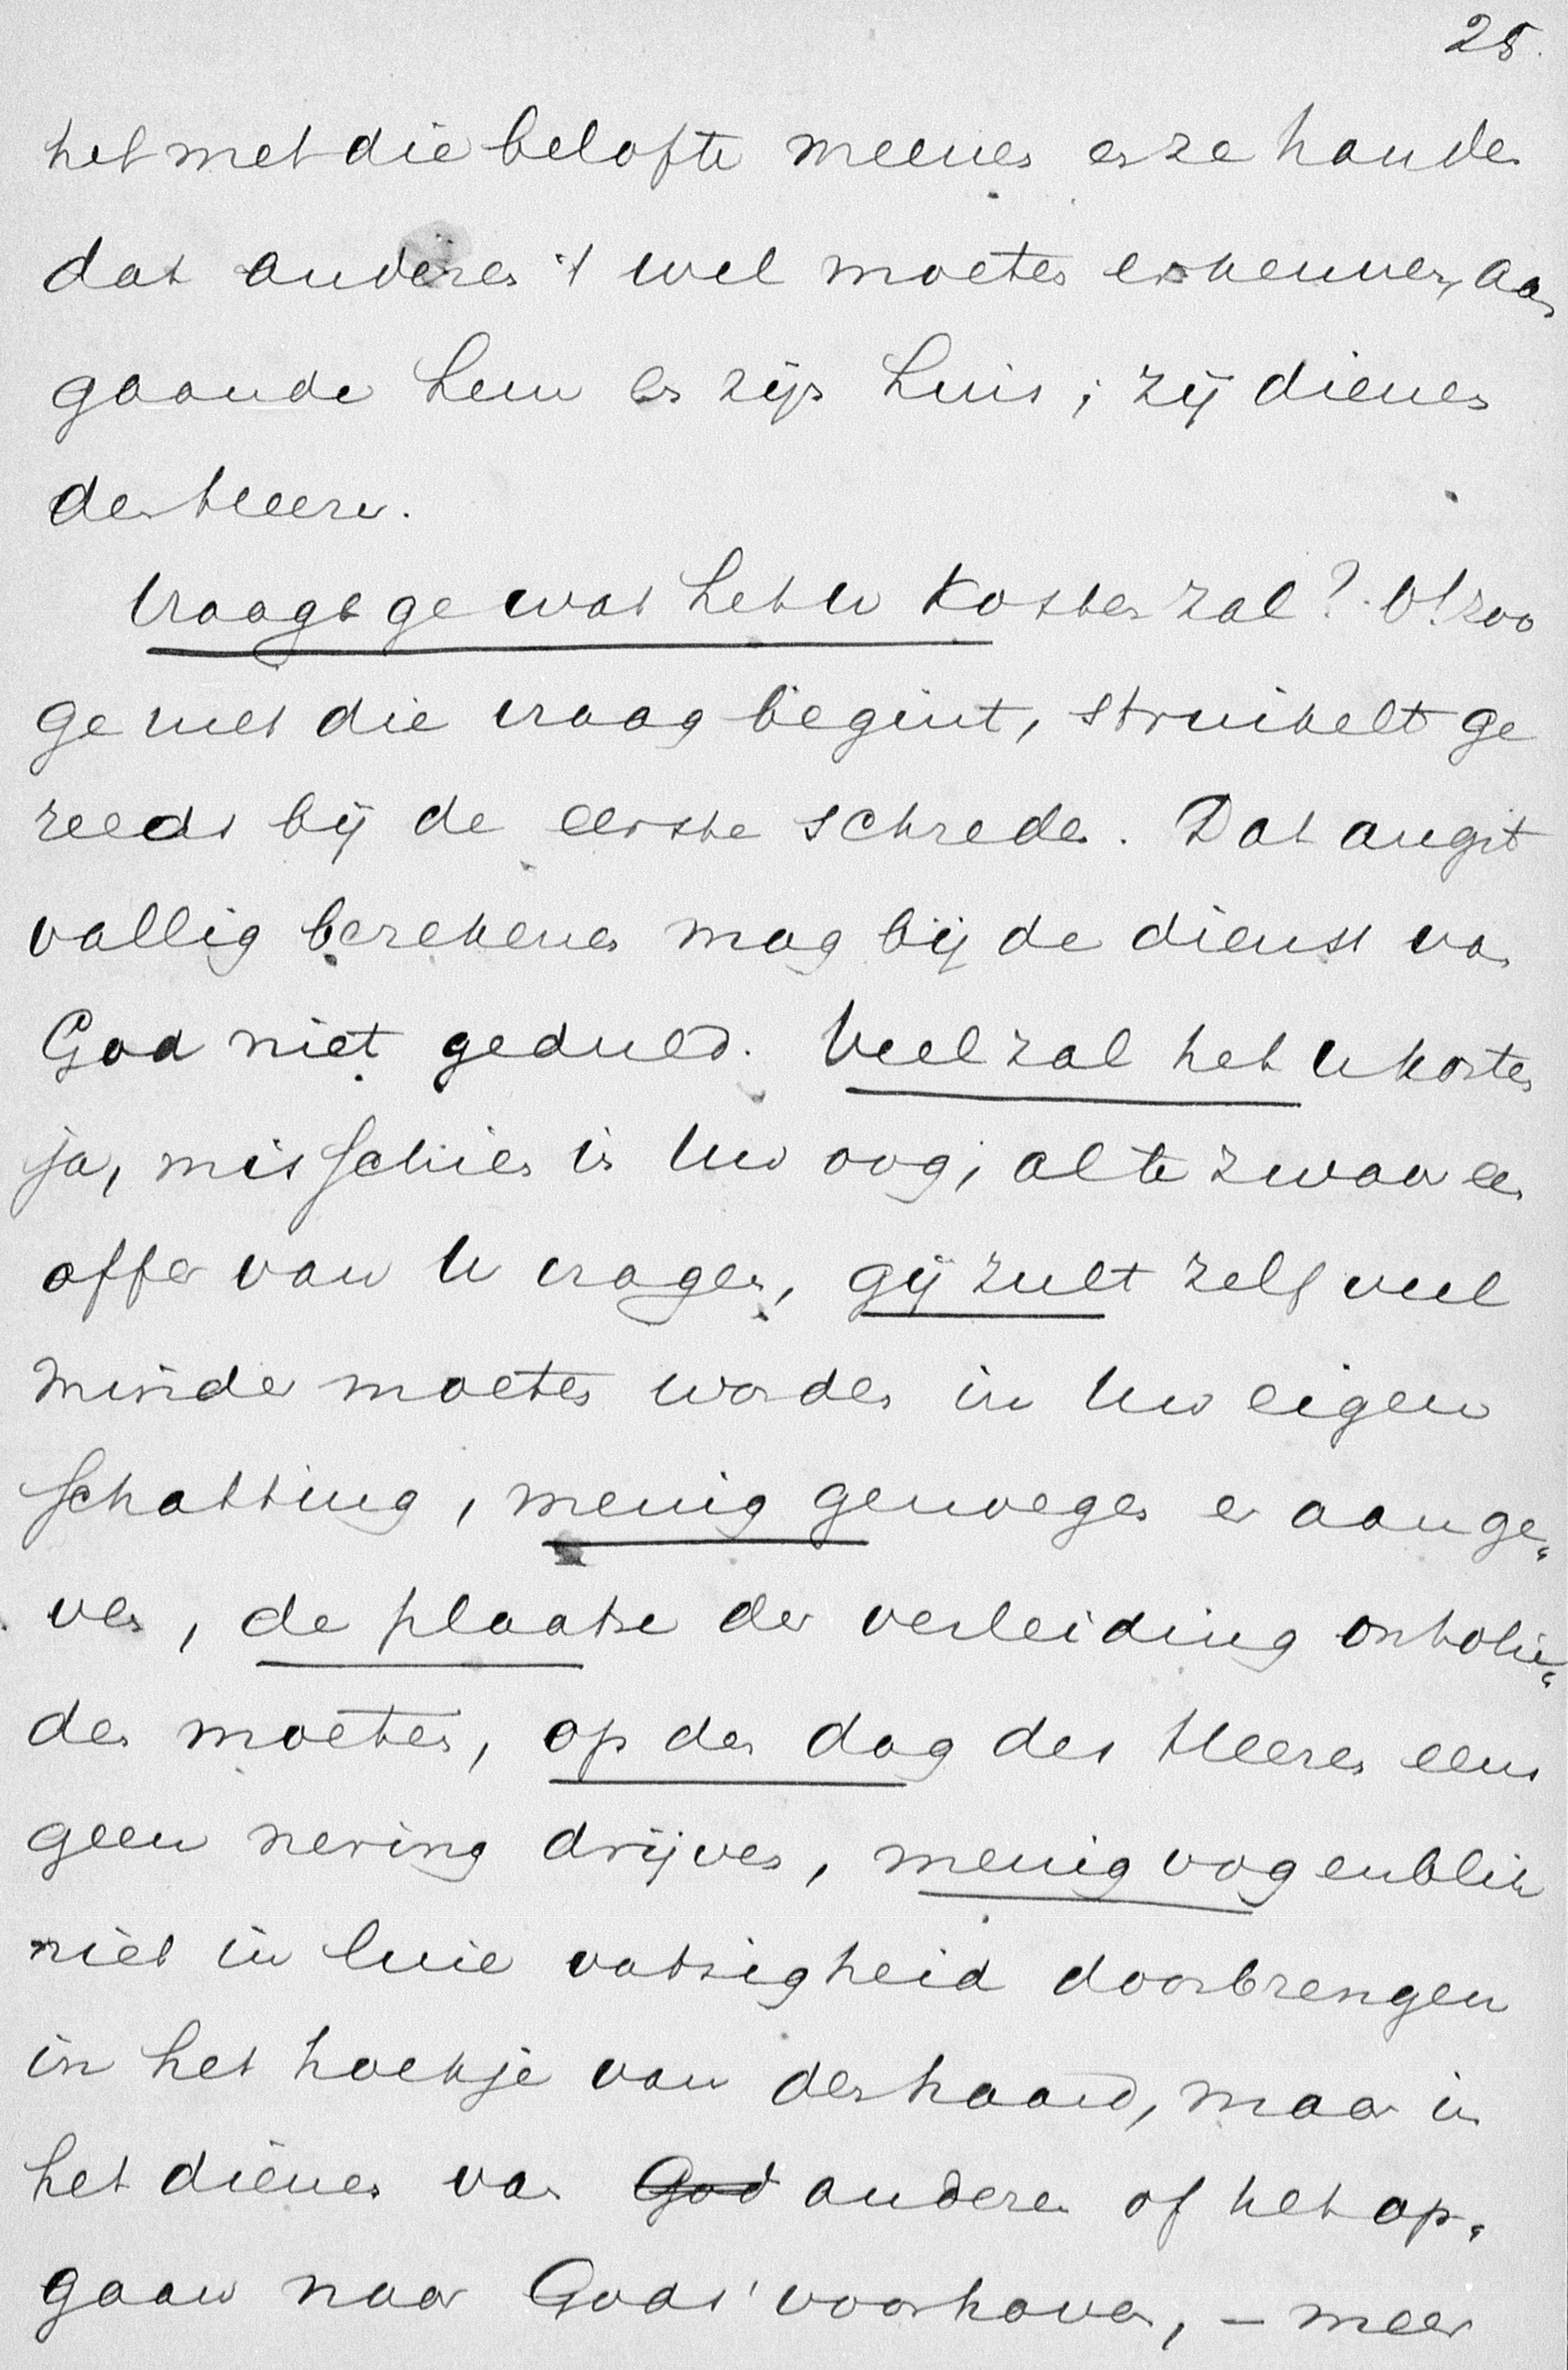 25.
het met die belofte meenen en ze houden
dat anderen 't wel moeten erkennen, aan
gaande hem en zijn huis; zij dienen
den Heere.
Vraagt ge wat het U kosten zal? O! zoo
ge met die vraag begint, struikelt ge
reeds bij de eerste schreden. Dat angst
vallig berekenen mag bij de dienst van
God niet geduld. Veel zal het U kosten
ja, misschien in Uw oog, al te zwaar een
offer van U vragen, gij zult zelf veel
minder moeten worden in Uw eigen
schatting, menig genoegen er aan ge„
ven, de plaatse der verleiding ontvlie„
den moeten, op den dag des Heeren eens
geen nering drijven, menig oogenblik
niet in luie vadsigheid doorbrengen
in het hoekje van den haard, maar in
het dienen van God anderen of het op„
gaan naar Gods' voorhoven, – meer